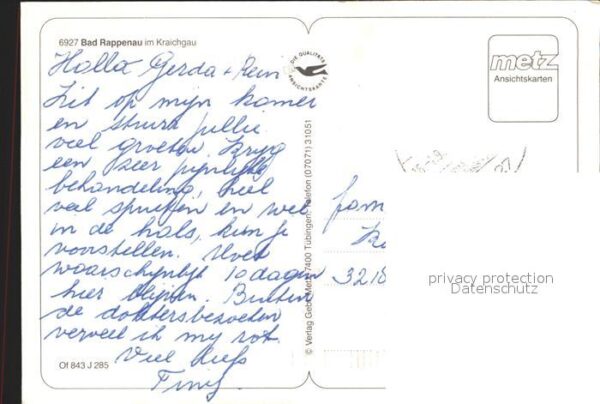 6927 Bad Rappenau im Kraichgau
Hallo Gerda + Rein
Zit op mijn kamer
en stuur jullie
veel groeten. Krijg
een zeer pijnlijke
behandeling, heel
veel spuiten en wel
in de hals, kun je
voorstellen. Moet
waarschijnlijk 10 dagen
hier blijven. Buiten
de doktersbezoeken
verveel ik mij rot.
Veel liefs
Of 843 J 285
DIE QUALITÄTS
ANSICHTSKARTE
© Verlag Gebr. Metz, 7400 Tübingen, Telefon (07071) 31051
metz
Ansichtskarten
fam
3218
privacy protection
Datenschutz